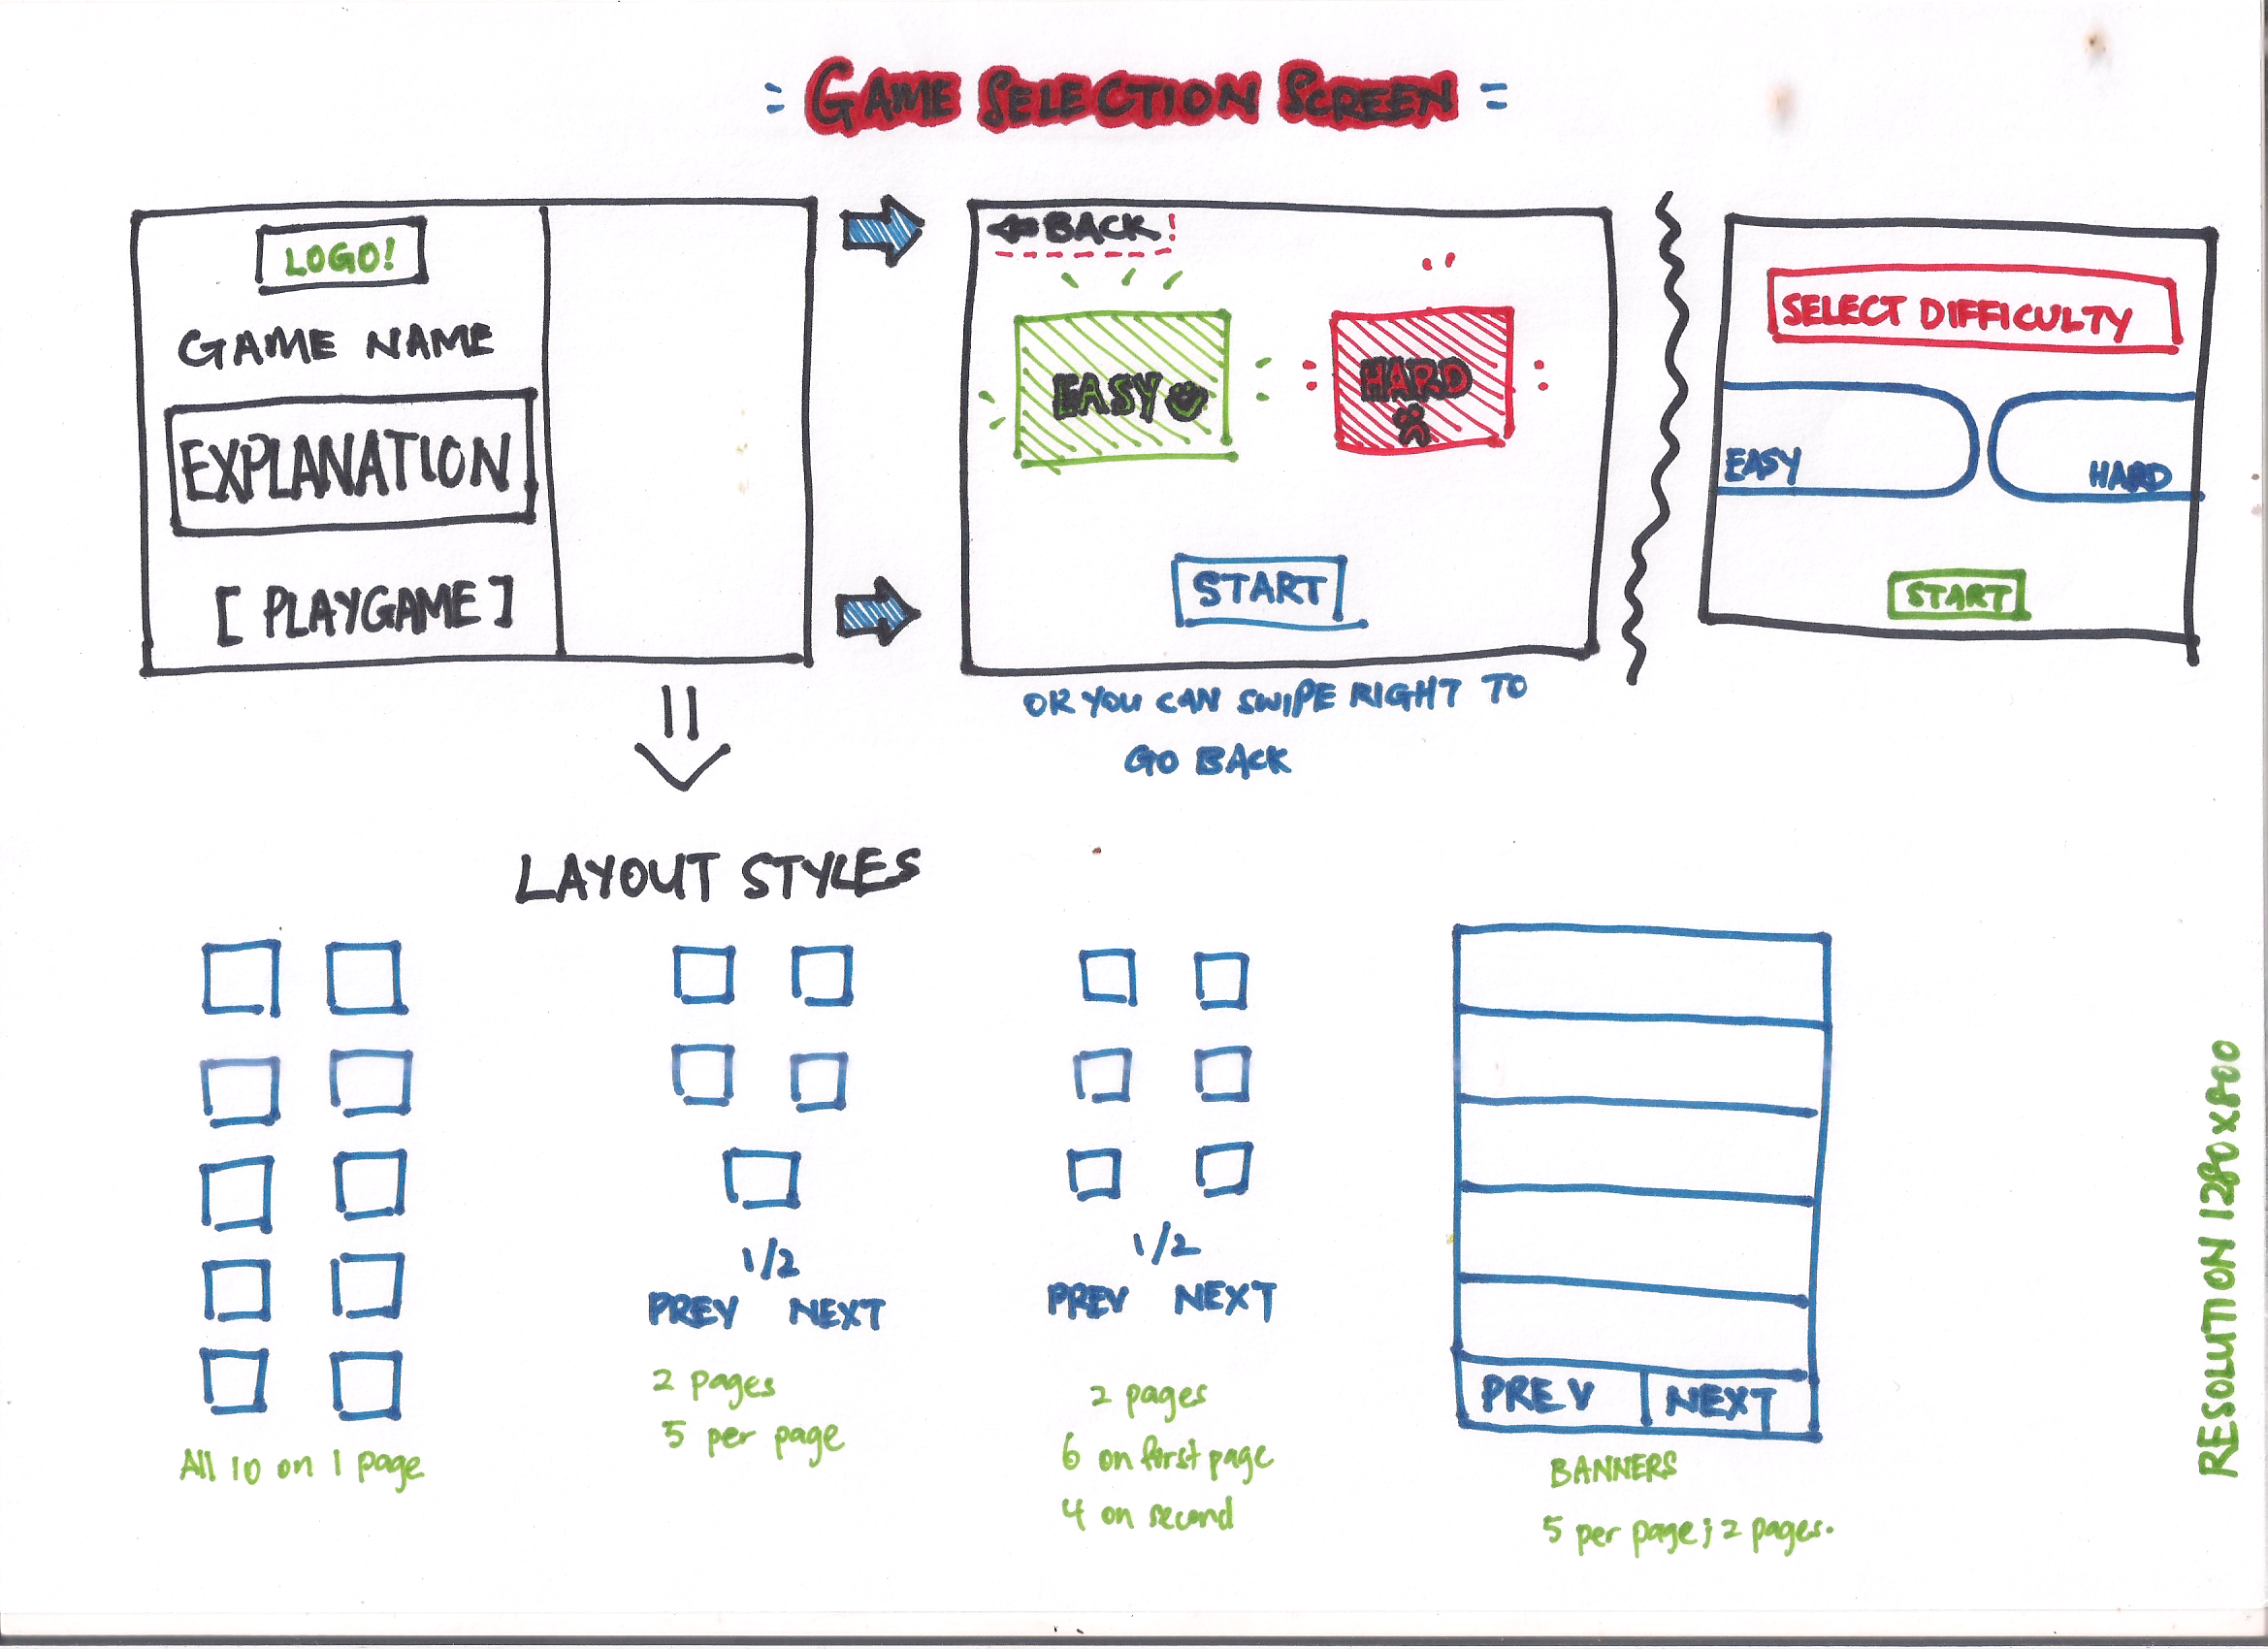 GAME SELECTION SCREEN
LOGO!
GAME NAME
EXPLANATION
[ PLAYGAME ]
BACK!
EASY
HARD
START
OR YOU CAN SWIPE RIGHT TO
GO BACK
SELECT DIFFICULTY
EASY
HARD
START
LAYOUT STYLES
All 10 on 1 page
1/2
PREV NEXT
2 pages
5 per page
1/2
PREV NEXT
2 pages
6 on first page
4 on second
PREV NEXT
BANNERS
5 per page; 2 pages.
RESOLUTION 1280x800